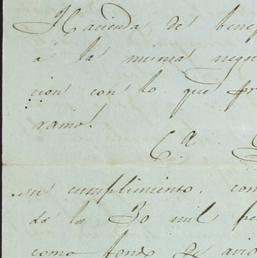 Hacienda de bene
á la misma nego
cion con lo que pr
ramo.
C.ª
su cumplimiento, con
de la 30 mil pe
como fondo de avio